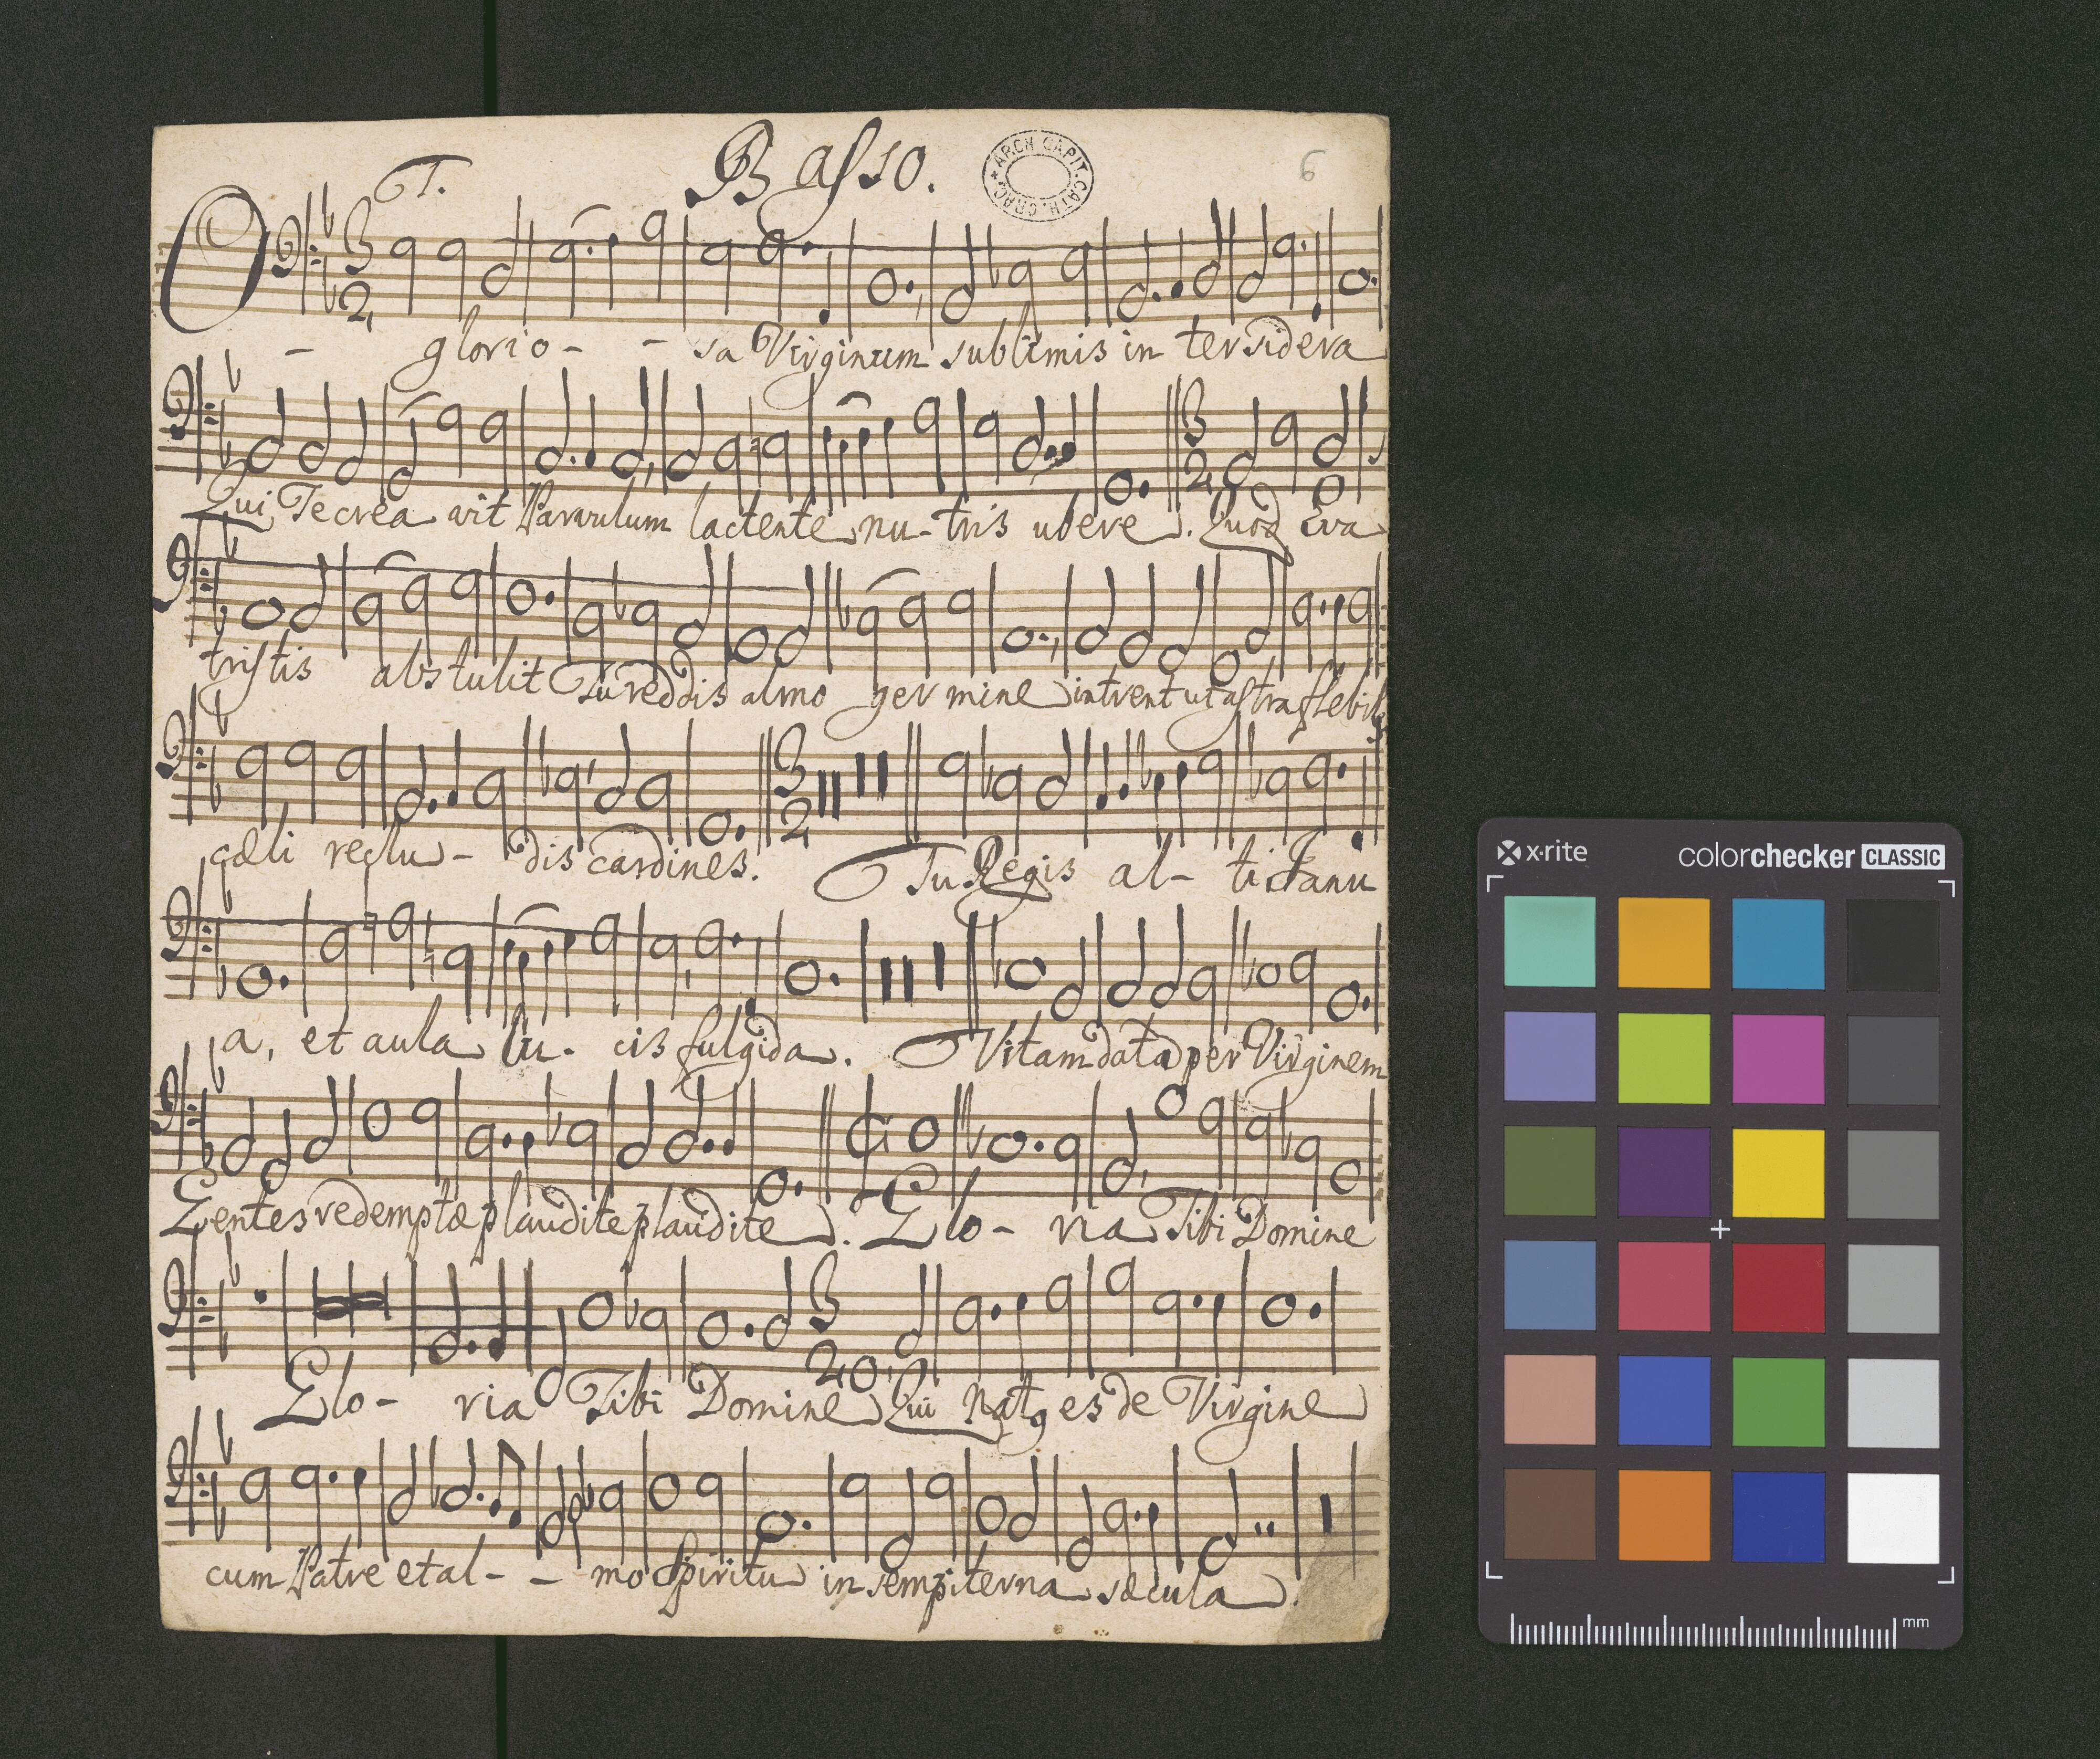 T. Basso.
ARCH. CAPIT. CATH. CRAC.
6
O - glorio - - sa Virginum sublimis in ter sidera
Qui Te creavit Parvulum lactente nu - tris ubere. Quod Eva
tristis abstulit Tu reddis almo germine intrent ut astra flebil
cæli reclu - dis cardines. Tu Regis al - ti Janu
a, et aula lu - cis fulgida. Vitam data per Virginem
Gentes redemptæ plaudite plaudite. Glo - ria Tibi Domine
Glo - ria Tibi Domine Qui natꝯ es de Virgine
cum Patre et al - - mo Spiritu in sempiterna sæcula.
x·rite
colorchecker CLASSIC
mm